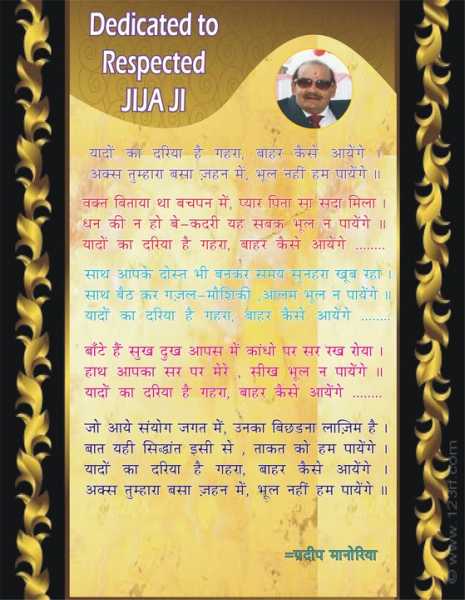 Dedicated to
Respected
JIJA JI
यादों का दरिया है गहरा, बाहर कैसे आयेंगे ।
अक्स तुम्हारा बसा ज़हन में, भूल नहीं हम पायेंगे ॥
वक्त बिताया था बचपन में, प्यार पिता सा सदा मिला ।
धन की न हो बे–कदरी यह सबक भूल न पायेंगे ॥
यादों का दरिया है गहरा, बाहर कैसे आयेंगे ........
साथ आपके दोस्त भी बनकर समय सुनहरा खूब रहा ।
साथ बैठ कर गज़ल–मौशिकी ,आलम भूल न पायेंगे ॥
यादों का दरिया है गहरा, बाहर कैसे आयेंगे ........
बाँटे हैं सुख दुख आपस में कांधो पर सर रख रोया ।
हाथ आपका सर पर मेरे , सीख भूल न पायेंगे ॥
यादों का दरिया है गहरा, बाहर कैसे आयेंगे ........
जो आये संयोग जगत में, उनका बिछडना लाज़िम है ।
बात यही सिद्धांत इसी से , ताकत को हम पायेंगे ।
यादों का दरिया है गहरा, बाहर कैसे आयेंगे ।
अक्स तुम्हारा बसा ज़हन में, भूल नहीं हम पायेंगे ॥
=प्रदीप मानोरिया
© www.123rf.com